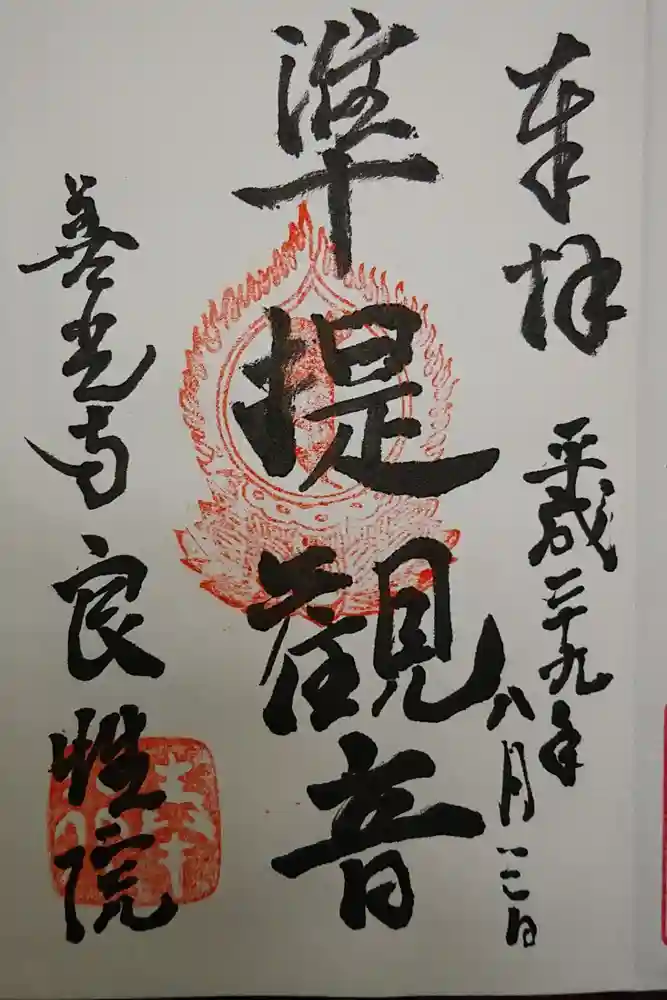 奉拝 平成二十九年八月三日
準提觀音
善光寺 良性院